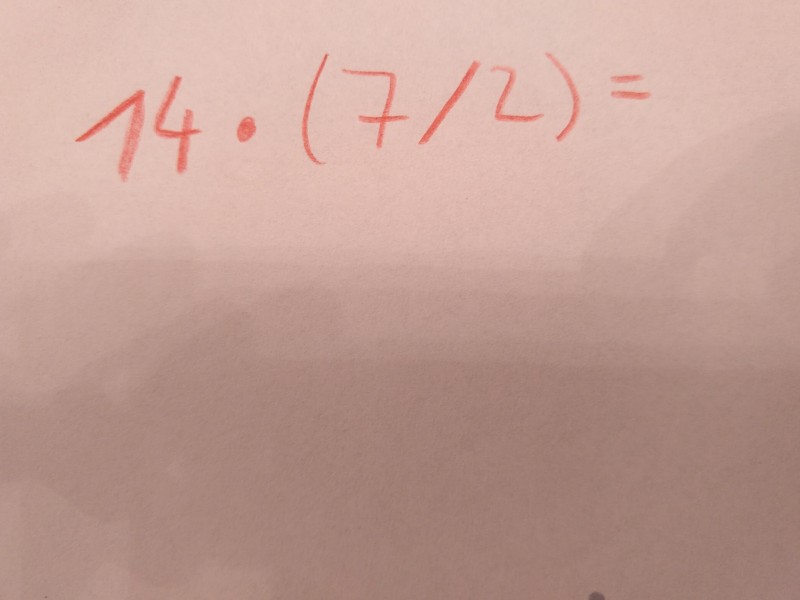 14 • (7/2) =